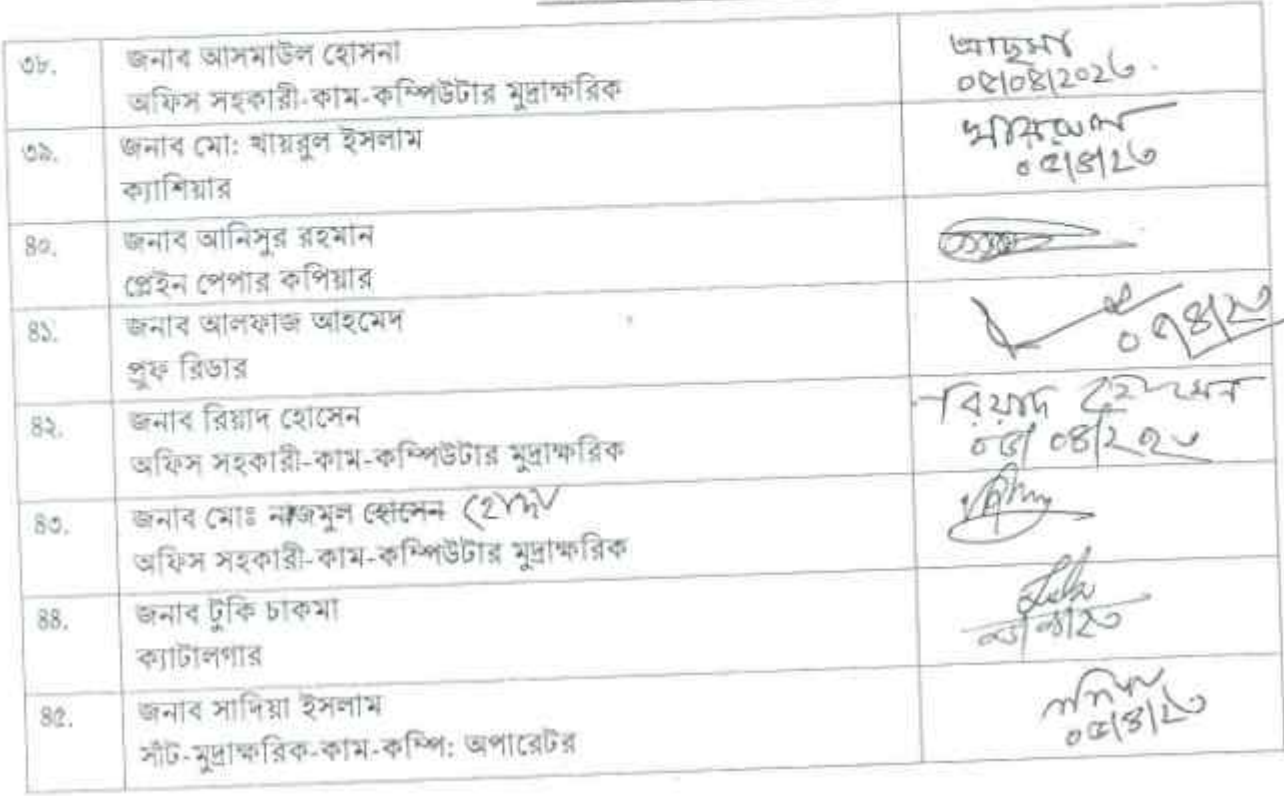 ৩৮. জনাব আসমাউল হোসনা
অফিস সহকারী-কাম-কম্পিউটার মুদ্রাক্ষরিক
০৫/০৪/২০২৩
৩৯. জনাব মো: খায়রুল ইসলাম
ক্যাশিয়ার
খায়রুল
০৫/৪/২৩
৪০. জনাব আনিসুর রহমান
প্লেইন পেপার কপিয়ার
৪১. জনাব আলফাজ আহমেদ
প্রুফ রিডার
৪২. জনাব রিয়াদ হোসেন
অফিস সহকারী-কাম-কম্পিউটার মুদ্রাক্ষরিক
রিয়াদ হোসেন
৪৩. জনাব মোঃ নাজমুল হোসেন
অফিস সহকারী-কাম-কম্পিউটার মুদ্রাক্ষরিক
৪৪. জনাব টুকি চাকমা
ক্যাটালগার
৪৫. জনাব সাদিয়া ইসলাম
সাঁট-মুদ্রাক্ষরিক-কাম-কম্পি: অপারেটর
০৫/৪/২৩